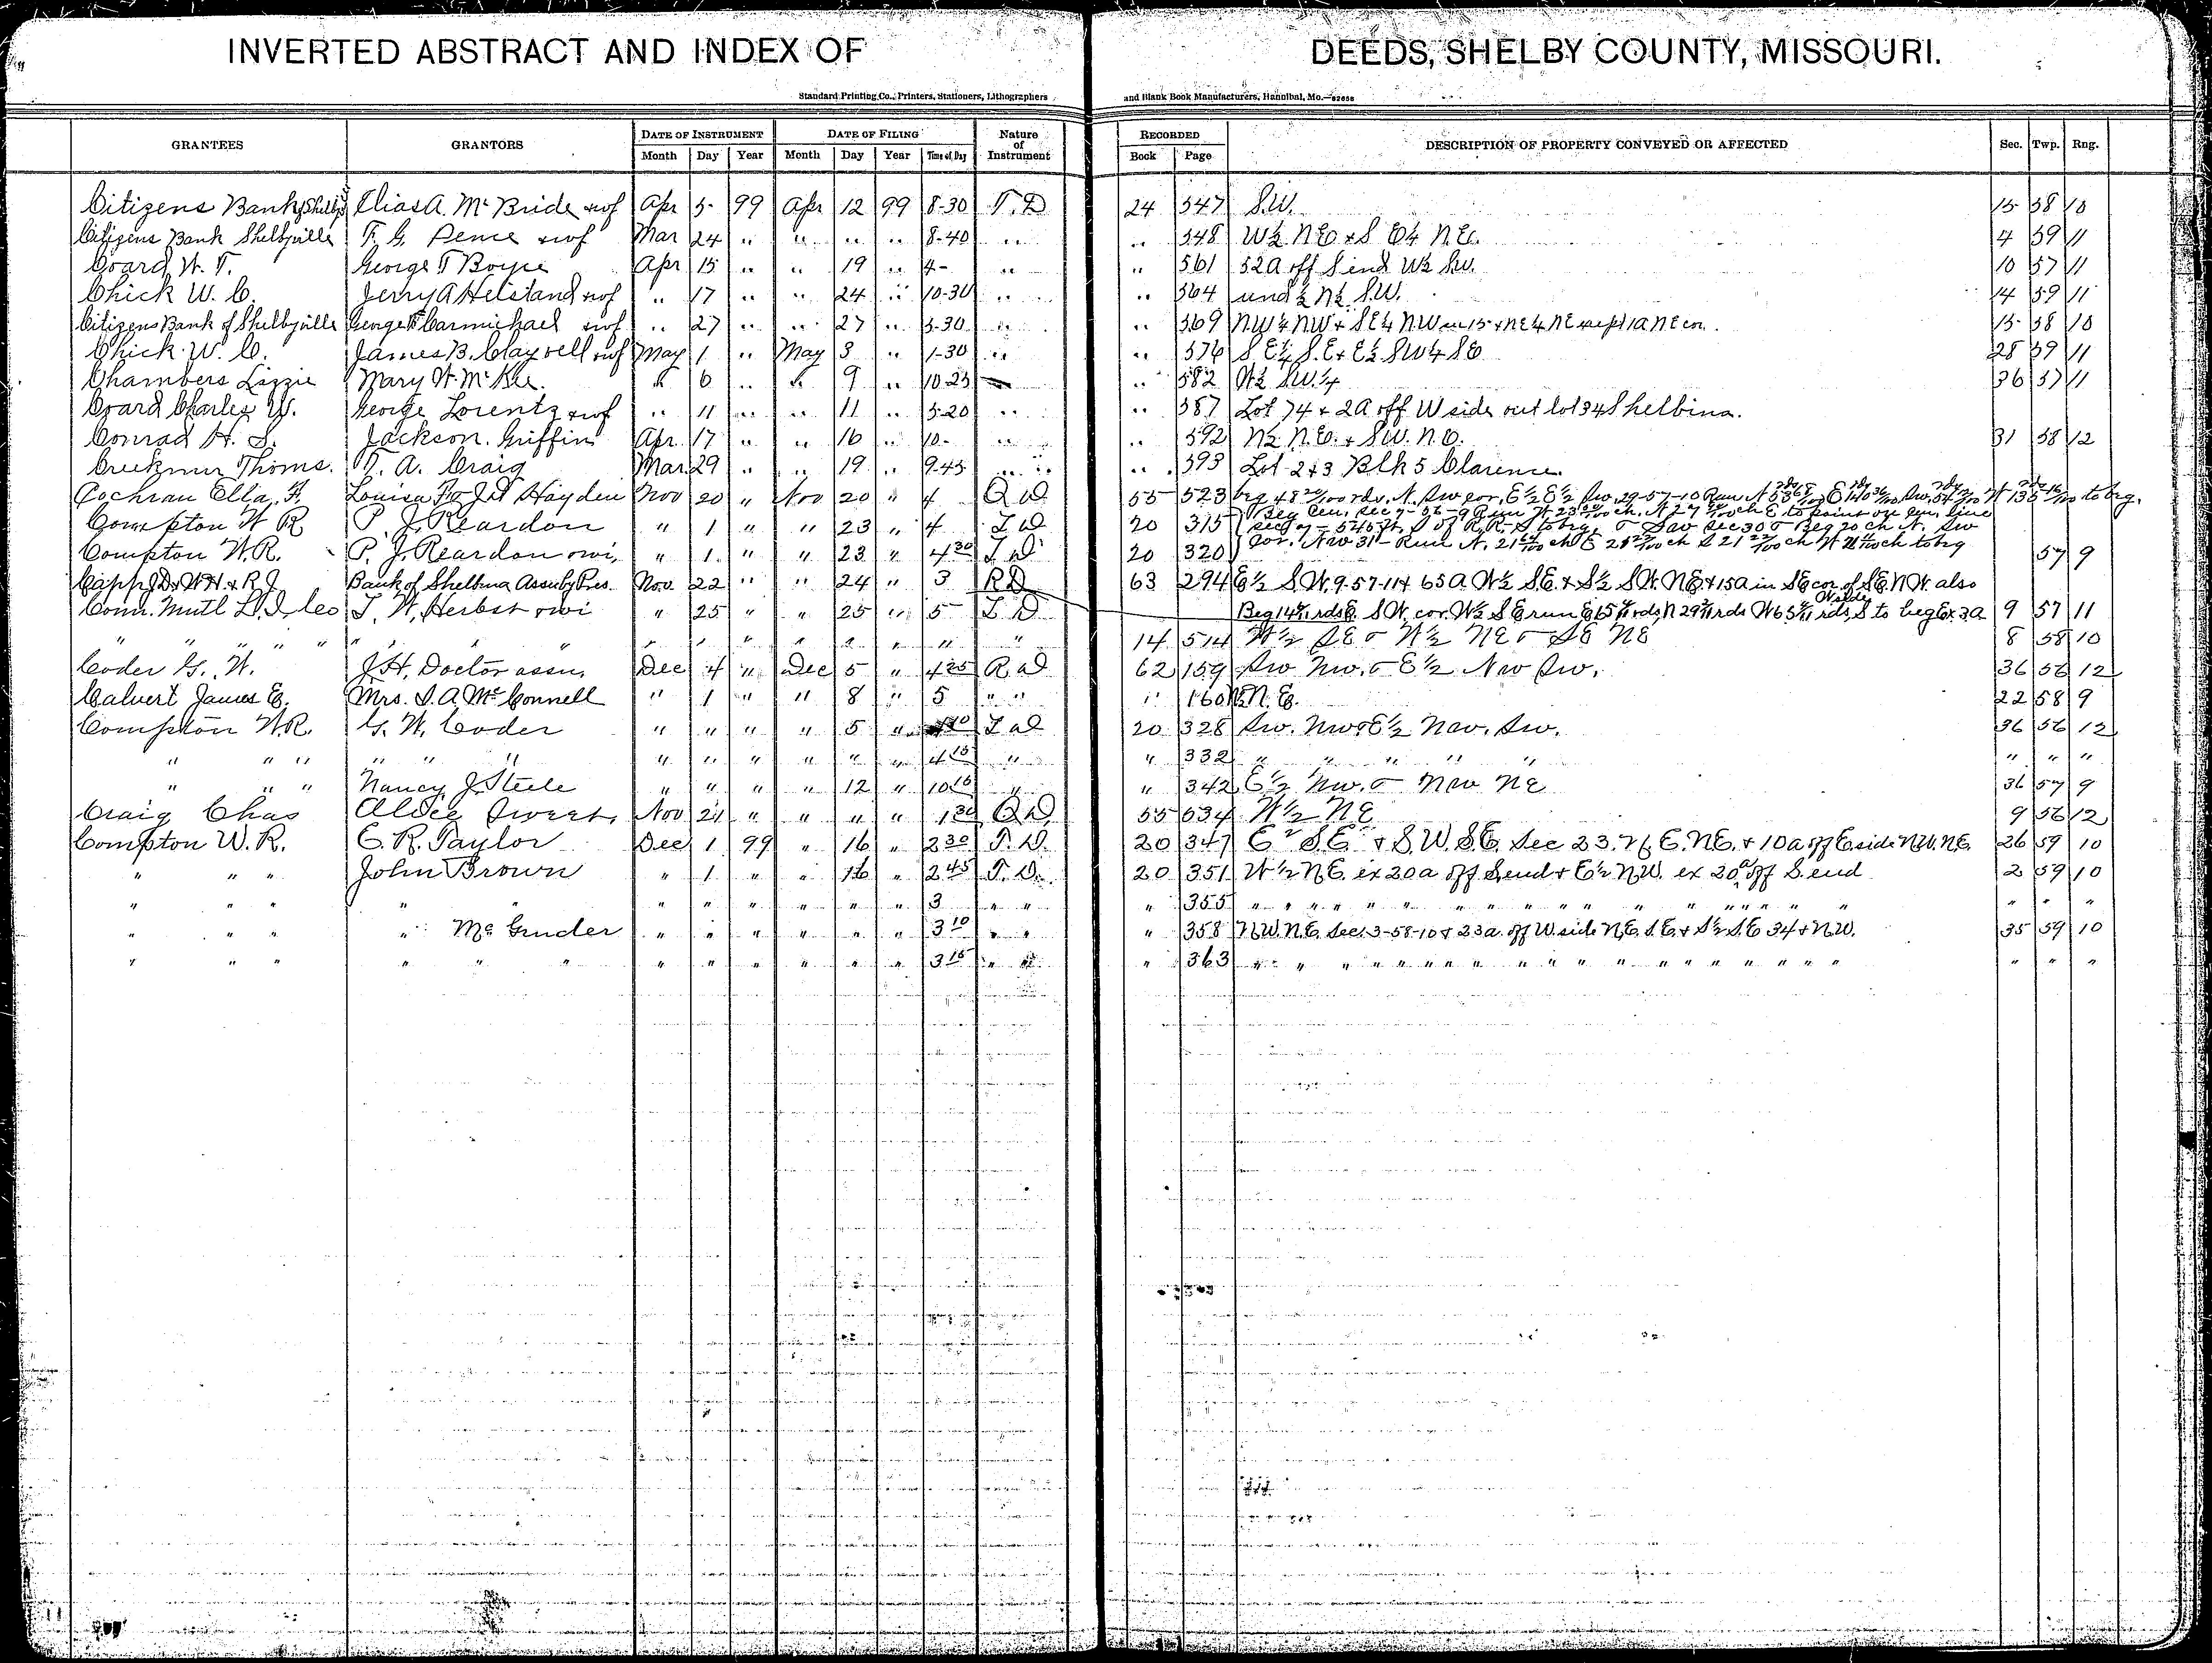 INVERTED ABSTRACT AND INDEX OF DEEDS, SHELBY COUNTY, MISSOURI.
Standard Printing Co., Printers, Stationers, Lithographers and Blank Book Manufacturers, Hannibal, Mo.—82658
GRANTEES GRANTORS DATE OF INSTRUMENT DATE OF FILING Nature of Instrument RECORDED DESCRIPTION OF PROPERTY CONVEYED OR AFFECTED Sec. Twp. Rng.
Month Day Year Month Day Year Time of Day Book Page
Citizens Bank of Shelby Elias A. McBride & wf Apr 5 99 Apr 12 99 8-30 T.D 24 547 S.W. 15 58 10
Citizens Bank Shelbyville F. G. Pence & wf Mar 24 " " " " 8-40 " " 548 W½ N.E. & S E¼ N.E. 4 59 11
Coard W. T. George T Boyce Apr 15 " " 19 " 4- " " 561 52a off S end W½ Sw. 10 57 11
Chick W. C. Jerry A Heistand & wf " 17 " " 24 " 10-30 " " 564 und ½ N½ S.W. 14 59 11
Citizens Bank of Shelbyville George T Carmichael & wf " 27 " " 27 " 3-30 " " 569 NW¼ NW & SE¼ NW in 15 & NE¼ NE except 1a NE cor. 15 58 10
Chick W. C. James B. Claywell & wf May 1 " May 3 " 1-30 " " 576 S E¼ S.E & E½ SW¼ SE 28 59 11
Chambers Lizzie Mary W. McKee. " 6 " " 9 " 10-25 " 582 W½ SW¼ 36 57 11
Coard Charles W. George Lorentz & wf " 11 " " 11 " 5-20 " " 587 Lot 74 & 2a off W side out lot 34 Shelbina.
Conrad H. S. Jackson Griffin Apr. 17 " " 16 " 10- " " 592 N½ N.E. & SW. N.E. 31 58 12
Thoms. T. A. Craig Mar 29 " " 19 " 9-45 " " 593 Lot 2 & 3 Blk 5 Clarence.
Cochran Ella F. Louisa F & J H Hayden Nov 20 " Nov 20 " 4 Q D 55 523 beg 48 rds. N. Sw cor. E½ E½ Sw. 29-57-10 Run N to beg.
Compton W R P. J. Reardon " 1 " " 23 " 4 T D 20 315 Beg Cen. Sec 7-56-9 Run W. 23 ch. N 27 ch E to point on cen. line
Sec 7 - 545 ft. S of R.R. S to beg. & Sw Sec 30 & Beg 20 ch N. Sw
Compton W.R. P. J. Reardon & wi, " 1 " " 23 " 4 30 T D 20 320 Cor. Nw 31 - Run N. 21 ch E 28 ch S 21 ch W ch to beg 57 9
Capp J.D. & W.H. & R.J. Bank of Shelbina Assn by Pres. Nov. 22 " " 24 " 3 R D 63 294 E½ S.W. 9-57-11 & 65a W½ S.E. & S½ S.W. N.E. & 15a in SE cor. of S.E. N.W. also
Conn. Mutl L. I. Co J. W. Herbst & wi " 25 " " 25 " 5 T D Beg 14 rds E. S.W. cor. W½ S.E run E 65 rds, N 29 rds W 65 rds, S to beg Ex. 3a 9 57 11
" " " " " " " " " " " " " " 14 514 W½ SE & W½ NE & SE NE 8 58 10
Coder G. W. J. H. Doctor assn. Dec 4 " Dec 5 " 4 25 R D 62 159 Sw Nw. & E½ Nw Sw. 36 56 12
Calvert James E. Mrs. S. A. McConnell " 1 " " 8 " 5 " " " 160 N.E. 22 58 9
Compton W.R. G. W. Coder " " " " 5 " T D 20 328 Sw. Nw & E½ Nw. Sw. 36 56 12
" " " " " " " " " " " " " 4 15 " " 332 " " " " " " " "
" " " Nancy J. Steele " " " " 12 " 10 15 " " 342 E½ Nw. & Nw NE 36 57 9
Craig Chas Aldie Sweet, Nov 21 " " " " 1 30 Q D, 55 634 W½ NE 9 56 12
Compton W. R. C. R. Taylor Dec 1 99 " 16 " 2 30 T. D. 20 347 E½ S.E. & S.W. S.E. Sec 23. N.E. NE. & 10a off E side N.W. N.E. 26 59 10
" " " John Brown " 1 " " 16 " 2 45 T. D. 20 351 W½ N.E. ex 20a off S. end & E½ N.W. ex 20a off S. end 2 59 10
" " " " " " " " " " " 3 " " " 355 " " " " " " " " " " " " " " " " "
" " " " McGruder " " " " " " 3 10 " " " 358 N.W. N.E. Sec. 3-58-10 & 23a. off W side N.E. S.E. & S½ S.E. 34 & N.W. 35 59 10
" " " " " " " " " " " " 3 15 " " " 363 " " " " " " " " " " " " " " " " " "